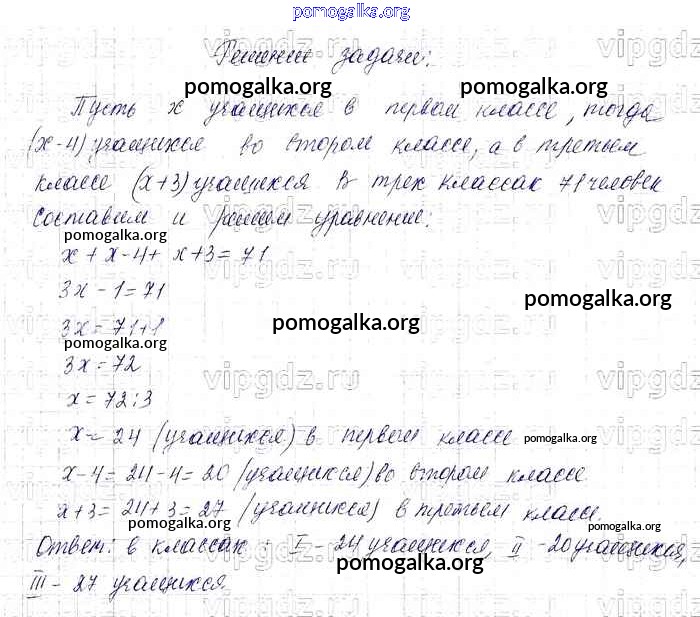 pomogalka.org
Решение задачи:
vipgdz.ru
pomogalka.org pomogalka.org
Пусть x учащихся в первом классе, тогда
(x-4) учащихся во втором классе, а в третьем
классе (x+3) учащихся В трех классах 71 человек
составим и решим уравнение:
pomogalka.org
x + x-4+ x+3= 71
vipgdz.ru vipgdz.ru
3x - 1 = 71
pomogalka.org
3x = 71+1
pomogalka.org
pomogalka.org
3x = 72
vipgdz.ru vipgdz.ru
x = 72:3
x = 24 (учащихся) в первом классе
pomogalka.org
x-4= 24-4= 20 (учащихся) во втором классе
vipgdz.ru vipgdz.ru
x+3= 24+3= 27 (учащихся) в третьем классе.
pomogalka.org pomogalka.org
Ответ: в классах : I - 24 учащихся, II - 20 учащихся,
pomogalka.org
III - 27 учащихся.